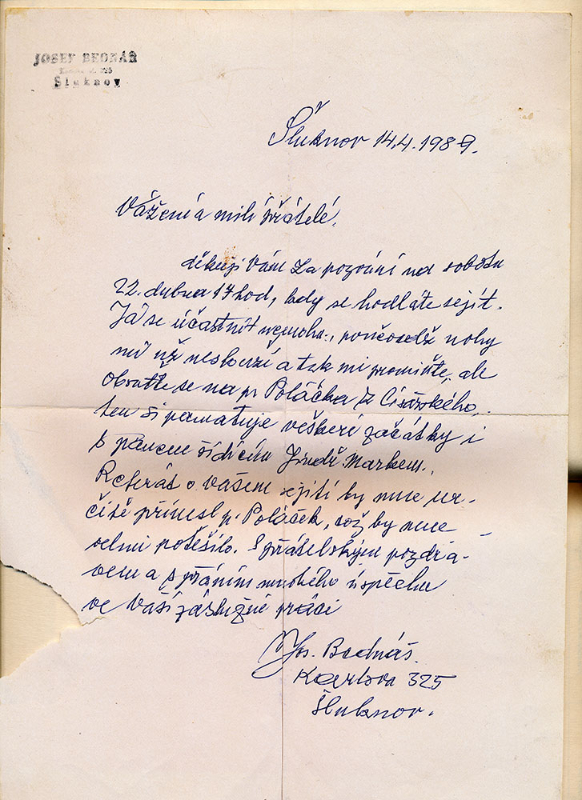 JOSEF BEDNÁŘ
Šluknov
Šluknov 14.4.1989.
Vážení a milí přátelé,
děkuji Vám za pozvání na sobotu
22. dubna 17 hod, kdy se hodláte sejít.
Já se účastnit nemohu, poněvadž nohy
mi již neslouží a tak mi promiňte, ale
obraťte se na p. Poláčka z Císařského,
ten si pamatuje veškeré začátky i
s panem řídícím Jindř Markem.
Referát o vašem sejití by mne ur-
čitě přinesl p. Poláček, což by mne
velmi potěšilo. S přátelským pozdra-
vem a s přáním mnohého úspěchu
ve Vaší záslužné práci
Jos. Bednář.
Karlova 325
Šluknov.